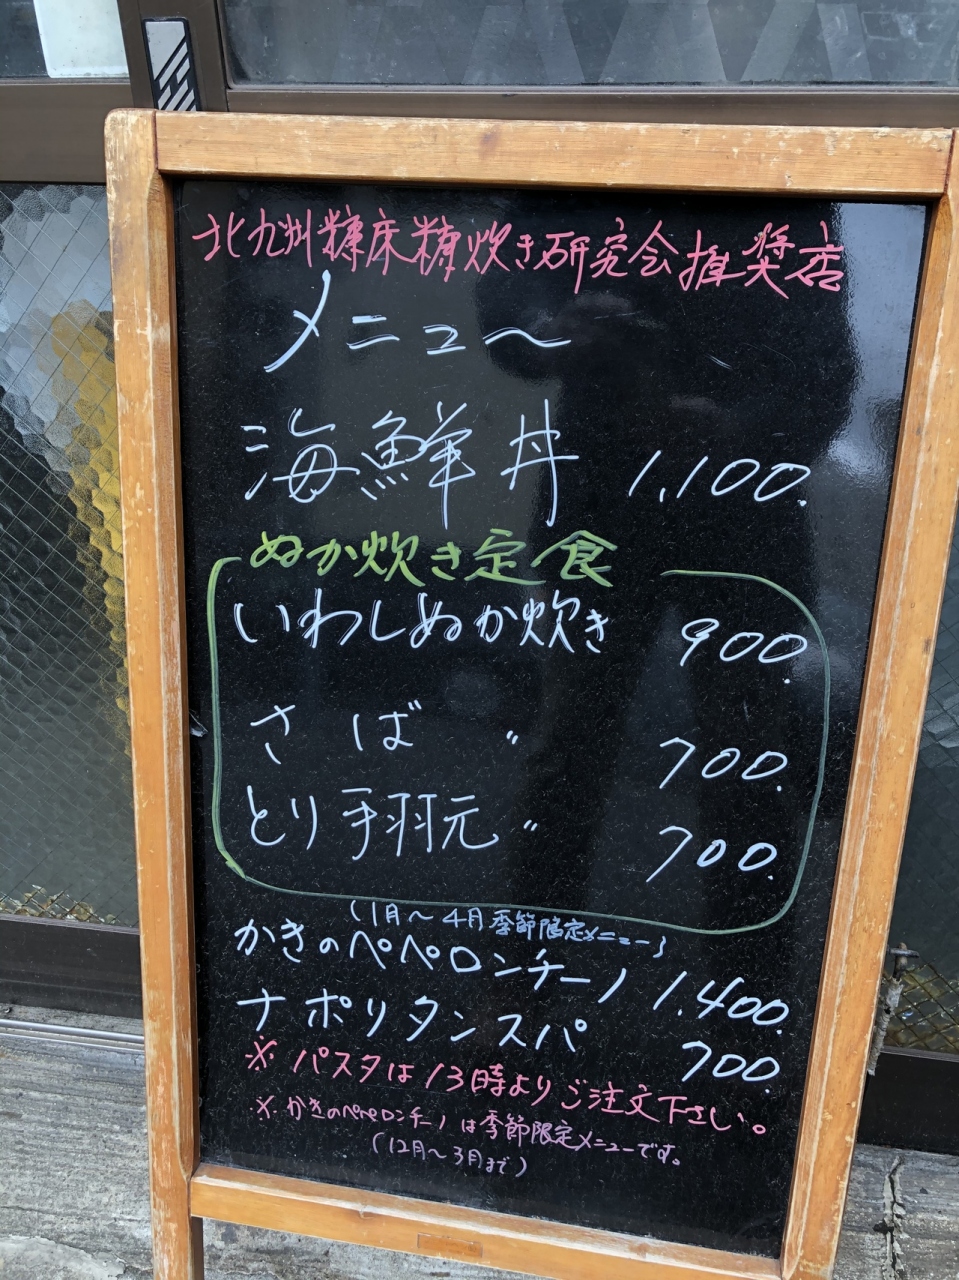 北九州糠床糠炊き研究会推奨店
メニュー
海鮮丼 1,100.
ぬか炊き定食
いわしぬか炊き 900.
さば 〃 700.
とり手羽元 〃 700.
(1月〜4月季節限定メニュー)
かきのペペロンチーノ 1,400.
ナポリタンスパ 700.
※パスタは13時よりご注文下さい。
※かきのペペロンチーノは季節限定メニューです。
(12月〜3月まで)